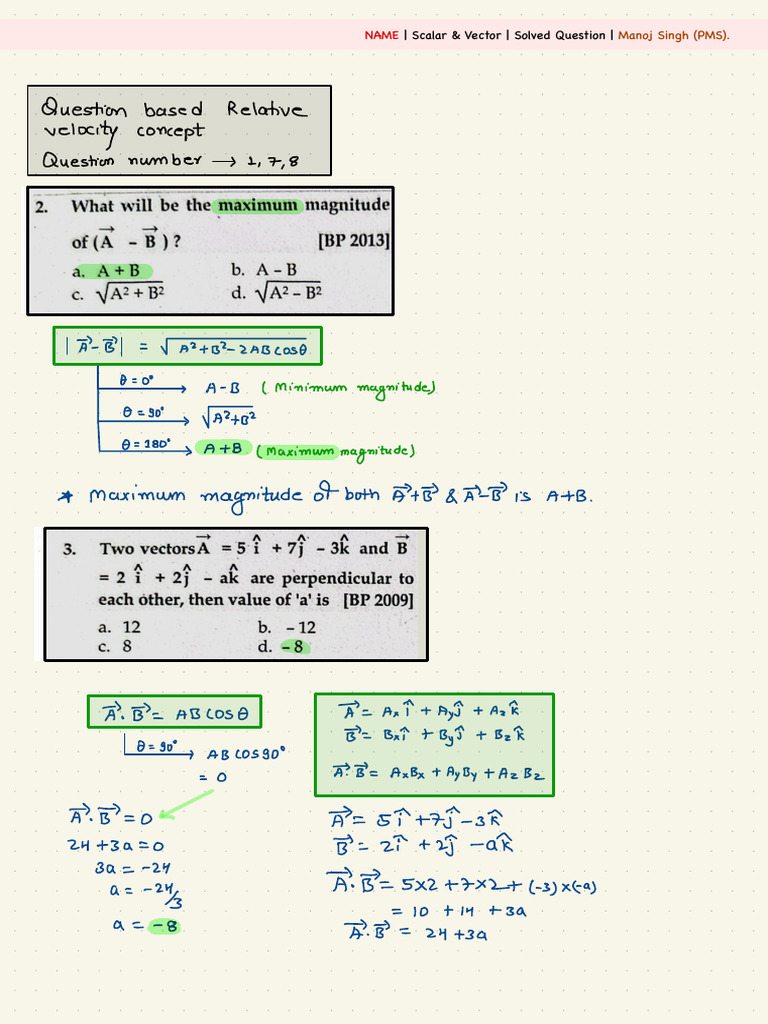 NAME | Scalar & Vector | Solved Question | Manoj Singh (PMS).
Question based Relative
velocity concept
Question number → 1, 7, 8
2. What will be the maximum magnitude
of (A⃗ - B⃗) ? [BP 2013]
a. A + B b. A - B
c. √A² + B² d. √A² - B²
|A⃗-B⃗| = √A²+B²-2ABcosθ
θ=0° A-B (Minimum magnitude)
θ=90° √A²+B²
θ=180° A+B (Maximum magnitude)
* Maximum magnitude of both A⃗+B⃗ & A⃗-B⃗ is A+B.
3. Two vectors A⃗ = 5 î + 7ĵ - 3k̂ and B⃗
= 2 î + 2ĵ - ak̂ are perpendicular to
each other, then value of 'a' is [BP 2009]
a. 12 b. - 12
c. 8 d. - 8
A⃗.B⃗ = ABCOSθ
θ=90° ABCOS90°
= 0
A⃗.B⃗ = 0
24 + 3a = 0
3a = -24
a = -24/3
a = -8
A⃗ = Axî + Ayĵ + Azk̂
B⃗ = Bxî + Byĵ + Bzk̂
A⃗.B⃗ = AxBx + AyBy + AzBz
A⃗ = 5î + 7ĵ - 3k̂
B⃗ = 2î + 2ĵ - ak̂
A⃗.B⃗ = 5x2 + 7x2 + (-3)x(-a)
= 10 + 14 + 3a
A⃗.B⃗ = 24 + 3a